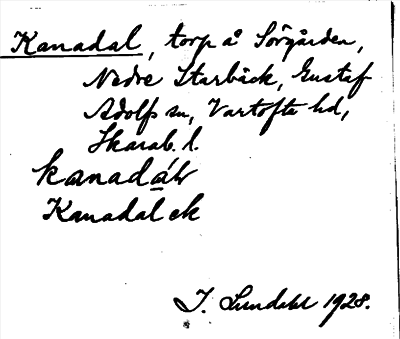 Kanadal, torp å Sörgården,
Nedre Starbäck, Gustaf
Adolfs sn, Vartofta hd,
Skarab. l.
Kanadal ek
I. Lundahl 1928.